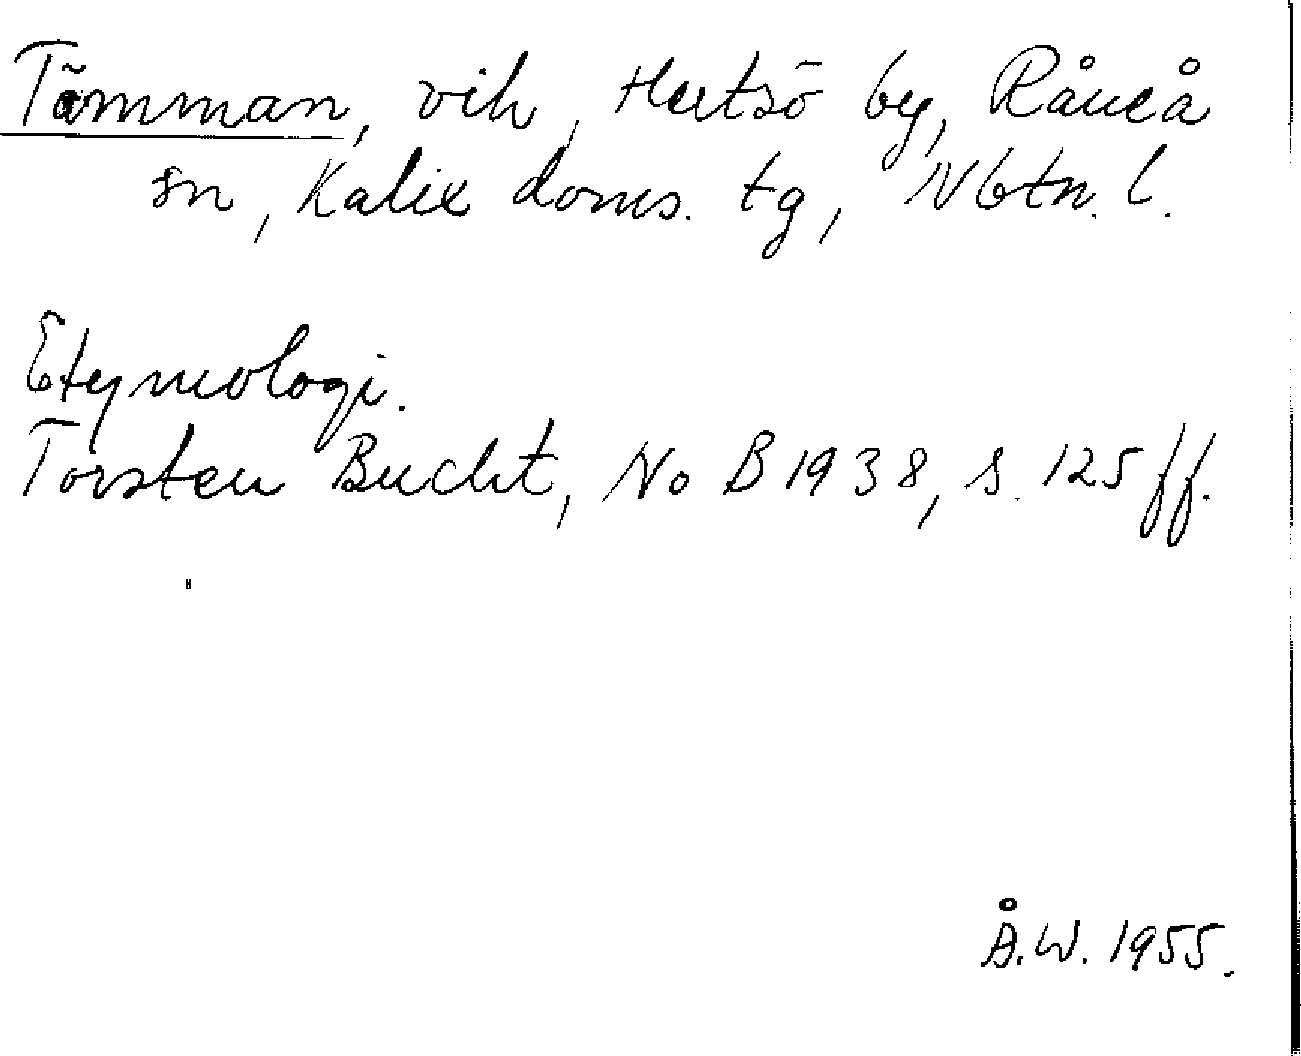 Tõmman, vik, Hertsö by, Råneå
sn, Kalix doms. tg, Nbtn. l.
Etymologi.
Torsten Bucht, No B 1938, s. 125 ff.
Å.W. 1955.